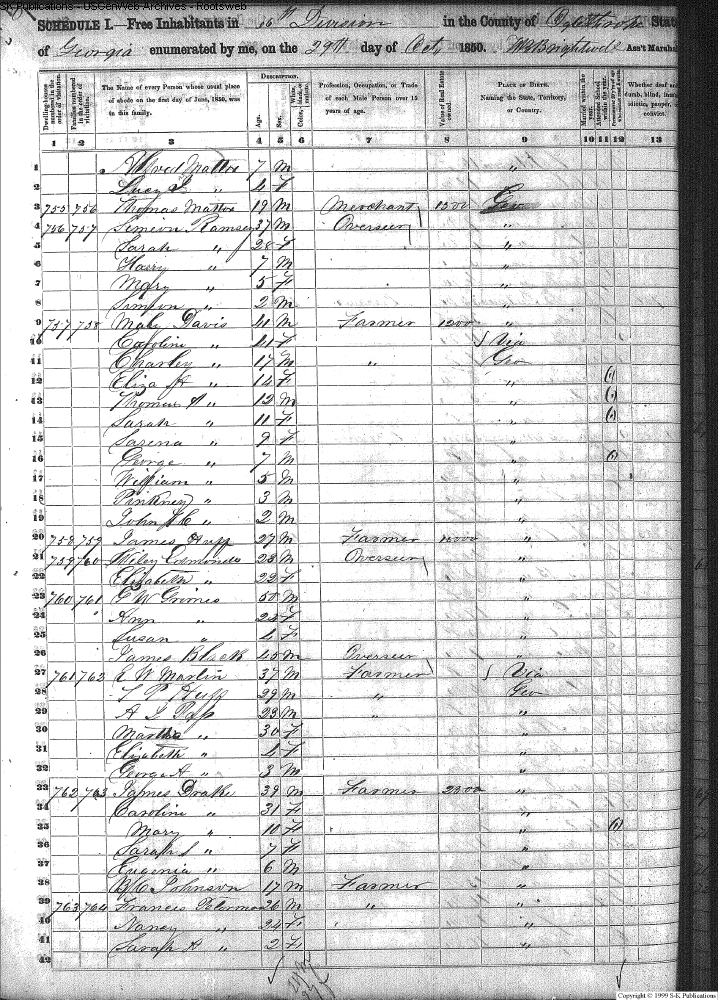 SK Publications - USGenWeb Archives - Rootsweb
SCHEDULE I.—Free Inhabitants in 16th Division in the County of Oglethorpe State
of Georgia enumerated by me, on the 29th day of Oct 1850. Ass't Marshal
Dwelling-houses numbered in the order of visitation.
Families numbered in the order of visitation.
The Name of every Person whose usual place of abode on the first day of June, 1850, was in this family.
DESCRIPTION.
Age.
Sex.
Color, White, black, or mulatto.
Profession, Occupation, or Trade of each Male Person over 15 years of age.
Value of Real Estate owned.
PLACE OF BIRTH. Naming the State, Territory, or Country.
Married within the year.
Attended School within the year.
Whether deaf and dumb, blind, insane, idiotic, pauper, or convict.
1 2 3 4 5 6 7 8 9 10 11 12 13
1 Alfred Mattox 7 M "
2 Lucy " 4 F "
3 755 756 Thomas Mattox 19 M Merchant 1500 Geo
4 756 757 Simeon Ramsey 37 M Overseer "
5 Sarah " 28 F "
6 Harry " 7 M "
7 Mary " 5 F "
8 Simeon " 2 M "
9 757 758 Davis 41 M Farmer 1200 "
10 Caroline " 41 F Via
11 Charley " 17 M " Geo
12 Eliza A " 14 F " (1)
13 Thomas A " 12 M " (1)
14 Sarah " 11 F " (1)
15 Sarena " 9 F "
16 George " 7 M " (1)
17 William " 5 M "
18 Pinkney " 3 M "
19 John " 2 M "
20 758 759 James Huff 27 M Farmer "
21 759 760 Wiley Edmonds 23 M Overseer "
22 Elizabeth " 22 F "
23 760 761 Grimes 50 M "
24 Ann " 25 F "
25 Susan " 4 F "
26 James Black 45 M Overseer "
27 761 762 W Martin 37 M Farmer Via
28 P Huff 29 M " Geo
29 A 23 M " "
30 Martha " 30 F "
31 Elizabeth " 4 F "
32 George A " 3 M "
33 762 763 James Drake 39 M Farmer 2300 "
34 Caroline " 31 F "
35 Mary " 10 F " (1)
36 Sarah " 7 F "
37 Eugenia " 6 M "
38 Johnson 17 M Farmer "
39 763 764 Francis 26 M " "
40 Nancy " 24 F "
41 Sarah A " 2 F "
42
Copyright © 1999 S-K Publications